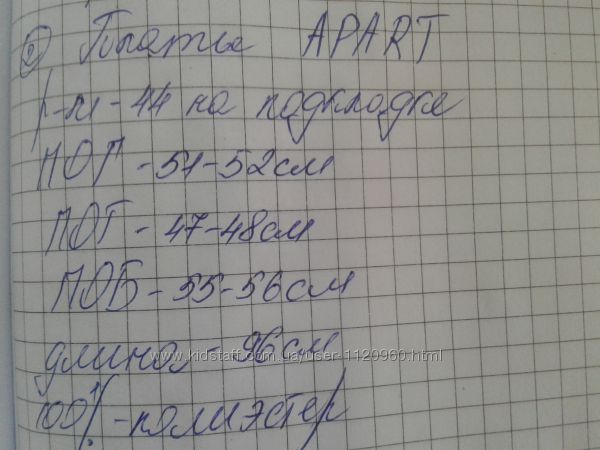 2) Платье APART
р-м-44 на подкладке
ПОГ-51-52см
ПОТ-47-48см
ПОБ-55-56см
длина-96см
www.kidstaff.com.ua/user-1120960.html
100%-полиэстер